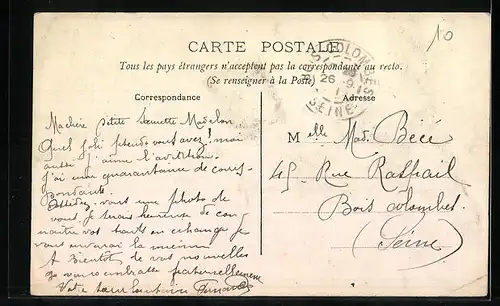 10
CARTE POSTALE
Tous les pays étrangers n'acceptent pas la correspondance au recto.
(Se renseigner à la Poste)
COLOMBES
26 -9
SEINE
Correspondance
Adresse
Ma chère petite Madelon
Quel joli vous avez! moi
aussi j'aime
J'ai une quarantaine de corres-
pondants.
vous une photo de
vous. Je serais heureuse de con-
naître vos en échange je
vous enverai la mienne
A Bientôt de vos nouvelles
Je vous embrasse
Votre sœur
Melle Mad. Bécé
45 Rue Raspail
Bois Colombes
(Seine)